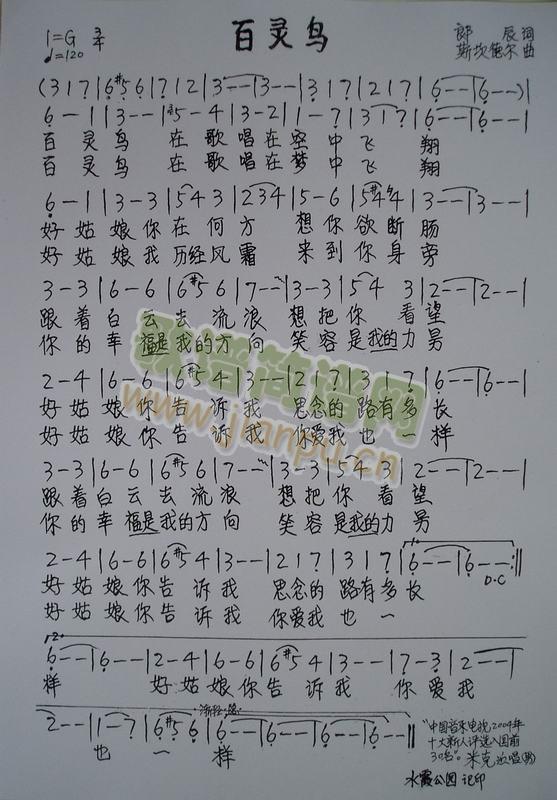 百灵鸟
1=G 3/4
♩=120
郎辰 词
斯坎德尔 曲
(3 1 7|6 #5 6|7 1 2|3--|3--|3 1 7|2 1 7|6--|6--)|
6-1|3--|#5-4|3-2|1-7|3 1 7|6--|6--|
百灵鸟 在歌唱在空中飞 翔
百灵鸟 在歌唱在梦中飞 翔
6-1|3-3|5 4 3|2 3 4|5-6|5 #4 4|3--|3--|
好姑娘你在何方 想你欲断肠
好姑娘我历经风霜 来到你身旁
3-3|6-6|6 #5 6|7--|3-3|5 4 3|2--|2--|
跟着白云去流浪 想把你 看望
你的幸福是我的方向 笑容是我的力男
2-4|6-6|6 #5 4|3--|2 1 7|3 1 7|6--|6--|
好姑娘你告诉我 思念的路有多长
好姑娘你告诉我 你爱我也一样
3-3|6-6|6 #5 6|7--|3-3|5 4 3|2--|2--|
跟着白云去流浪 想把你 看望
你的幸福是我的方向 笑容是我的力男
2-4|6-6|6 #5 4|3--|2 1 7|3 1 7|6--|6--:||
D.C
好姑娘你告诉我 思念的路有多长
好姑娘你告诉我 你爱我也一
2.
6--|6--|2-4|6-6|6 #5 4|3--|7-3|2--|
样 好姑娘你告诉我 你爱我
2--|1-7|6 #5 6|6--|6--|6--|6--||
也一样
"中国音乐电视2004年
十大新人评选入围前
30名"。米克 演唱(男)
水霞公园 记印
歌谱简谱网
www.jianpu.cn